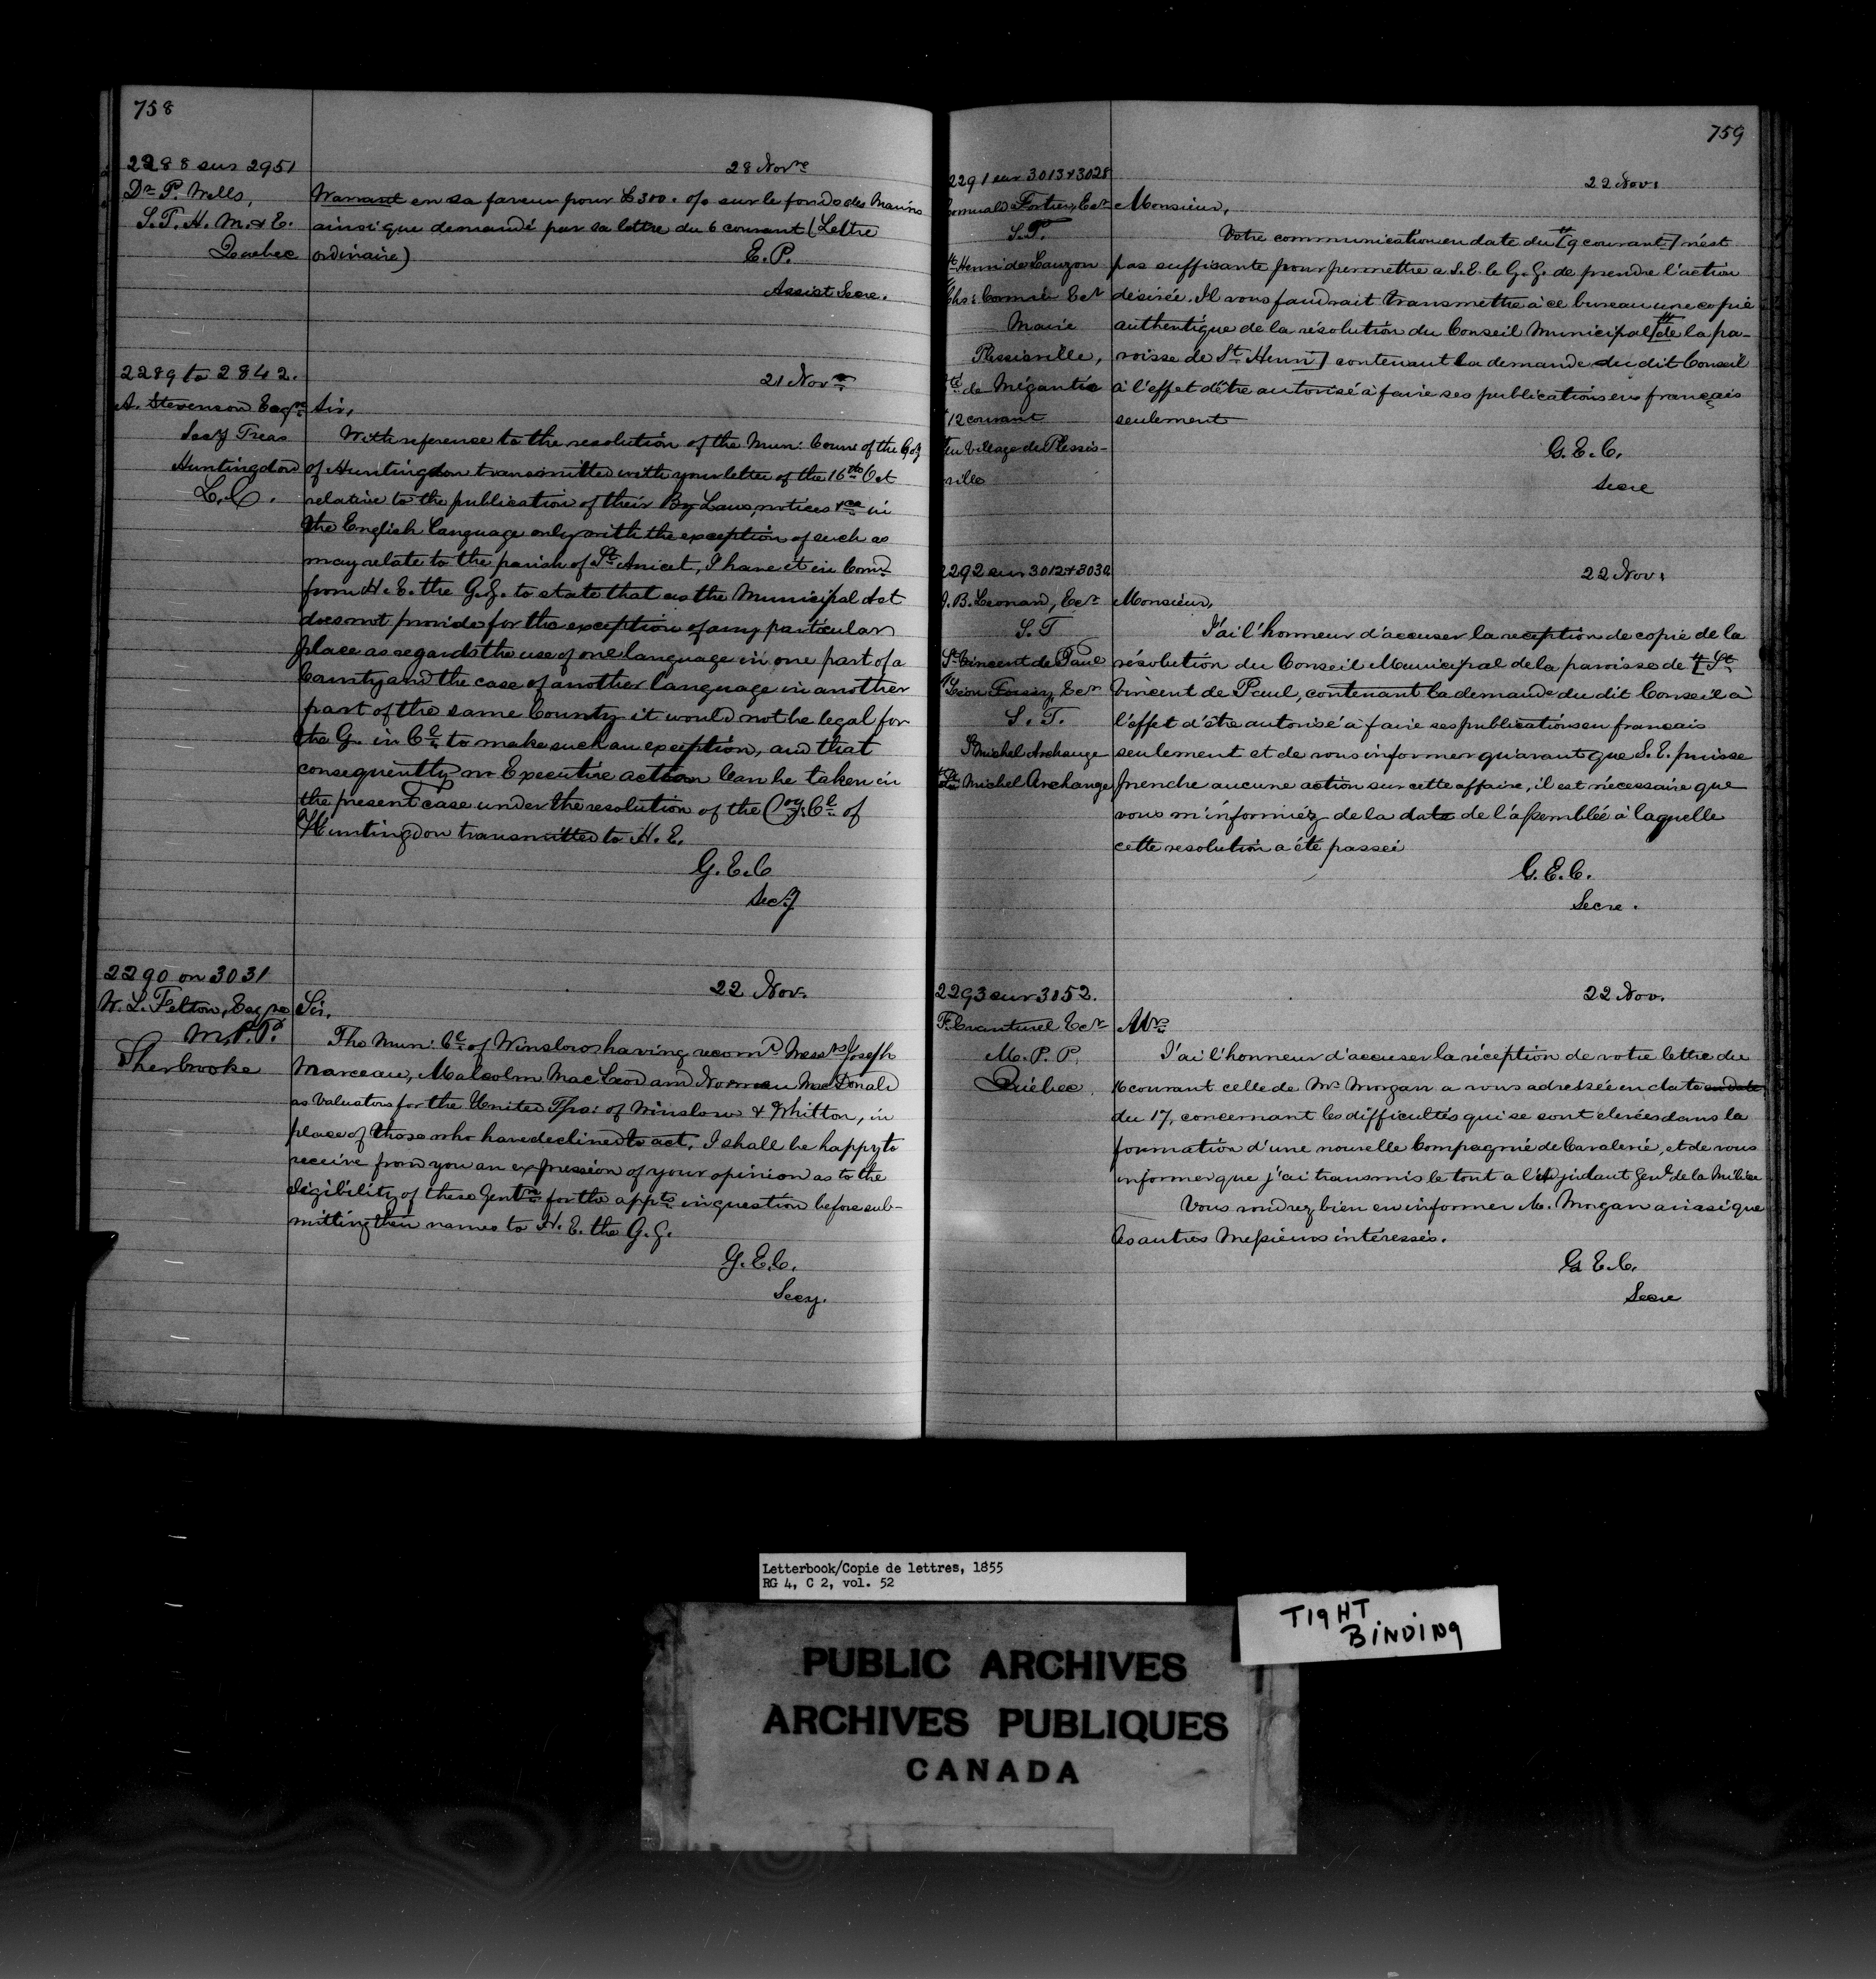 758
2288 sur 2951
Dr P. Wells,
S.T. H. M. & E.
Quebec
28 Novre
Warrant en sa faveur pour £300. 0/0 sur le fonds des Marins
ainsi que demandé par sa lettre du 6 courant (Lettre
ordinaire)
E. P.
Assist Secre.
2289 to 2842.
A. Stevenson Esqre
Secy Treas
Huntingdon
L. C.
21 Novre
Sir,
With reference to the resolution of the Mun: Counc of the Coy
of Huntingdon transmitted with your letter of the 16th Oct
relative to the publication of their By Laws, notices &ca in
the English language only with the exception of such as
may relate to the parish of St Anicet, I have it in Comd
from H. E. the G. G. to state that as the Municipal Act
does not provide for the exception of any particular
place as regards the use of one language in one part of a
County and the case of another language in another
part of the same County it would not be legal for
the G. in Cl to make such an exception, and that
consequently no Executive action can be taken in
the present case under the resolution of the Coy. Cl of
Huntingdon transmitted to H. E.
G. E. C
Secy
2290 on 3031
W. L. Felton, Esqre
M. P. P.
Sherbrooke
22 Nov.
Sir,
The Mun: Cl of Winslow having recomd Messrs Joseph
Marceau, Malcolm MacLeod and Norman MacDonald
as Valuators for the United Tps: of Winslow & Whitton, in
place of those who have declined to act, I shall be happy to
receive from you an expression of your opinion as to the
eligibility of these Gentn for the appts in question before sub-
mitting their names to H. E. the G. G.
G. E. C.
Secy.
759
2291 sur 3013 & 3028
Romuald Fortier, Ecr
S. T.
St Henri de Lauzon
Chs: Cormier Ecr
Maire
Plessisville,
Cté de Mégantic
12 courant
du Village de Plessis-
ville
22 Nov:
Monsieur,
Votre communication en date du [9 courant] n'est
pas suffisante pour permettre a S. E. le G. G. de prendre l'action
désirée. Il vous faudrait transmettre à ce bureau une copie
authentique de la résolution du Conseil Municipal [de la pa-
roisse de St Henri] contenant la demande du dit Conseil
à l'effet d'être autorisé à faire ses publications en français
seulement
G. E. C.
Secre
2292 sur 3012 & 3030
J. B. Leonard, Ecr
S. T
St Vincent de Paul
Léon Ecr
S. T.
St Michel Archange
St Michel Archange
22 Nov:
Monsieur,
J'ai l'honneur d'accuser la reception de copie de la
résolution du Conseil Municipal de la paroisse de [St
Vincent de Paul, contenant la demande du dit Conseil à
l'effet d'être autorisé à faire ses publications en francais
seulement et de vous informer qu'avant que S. E. puisse
prendre aucune action sur cette affaire, il est nécessaire que
vous m'informiéz de la date de l'assemblée à laquelle
cette resolution a été passeé
G. E. C.
Secre.
2293 sur 3152.
F. Evanturel Ecr
M. P. P.
Québec
22 Nov.
Mr
J'ai l'honneur d'accuser la réception de votre lettre du
16 courant celle de Mr Morgan a vous adressée en date en date
du 17, concernant les difficultés qui se sont elevées dans la
formation d'une nouvelle Compagnie de Cavalerie, et de vous
informer que j'ai transmis le tout a l'Adjudant Genl de la Milice
Vous voudrez bien en informer M. Morgan ainsi que
les autres Messieurs intéressés.
G. E. C.
Secre
Letterbook/Copie de lettres, 1855
RG 4, C 2, vol. 52
TIGHT
BINDING
PUBLIC ARCHIVES
ARCHIVES PUBLIQUES
CANADA